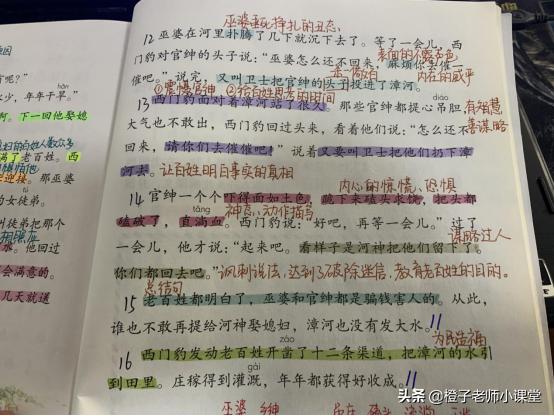 巫婆垂死挣扎的丑态。
园
12 巫婆在河里扑腾了几下就沉下去了。等了一会儿，西
表面的不露声色
门豹对官绅的头子说：“巫婆怎么还不回来，麻烦你去催一
有呢？”
催吧。”说完，又叫卫士把官绅的头子投进了漳河。
内在的威严
hàn
水少，年年干旱。”
①震慑官绅 ②给百姓思考的时间
diào
13 西门豹面对着漳河站了很久。那些官绅都提心吊胆
有智慧
啊。下一回他娶媳
大气也不敢出，西门豹回过头来，看着他们说：“怎么还不
善谋略
满了老百姓。西
回来，请你们去催催吧！”说着又要叫卫士把他们扔下漳
迎接。那巫婆
河去。
让百姓明白事实的真相
女徒弟。
内心的惊慌、恐惧
14 官绅一个个吓得面如土色，跪下来磕头求饶，把头都
叫徒弟把那个
tǎng
磕破了，直淌血。西门豹说：“好吧，再等一会儿。”过了
神态、动作描写
谋略过人
他回过
一会儿，他才说：“起来吧。看样子是河神把他们留下了。
会满意的。
你们都回去吧。”
讽刺说法，达到了破除迷信，教育老百姓的目的。
几天就送
总结句
15 老百姓都明白了，巫婆和官绅都是骗钱害人的。从此，
谁也不敢再提给河神娶媳妇，漳河也没有发大水。
为民造福
záo
16 西门豹发动老百姓开凿了十二条渠道，把漳河的水引
gài
到田里。庄稼得到灌溉，年年都获得好收成。
头条 @橙子老师小课堂